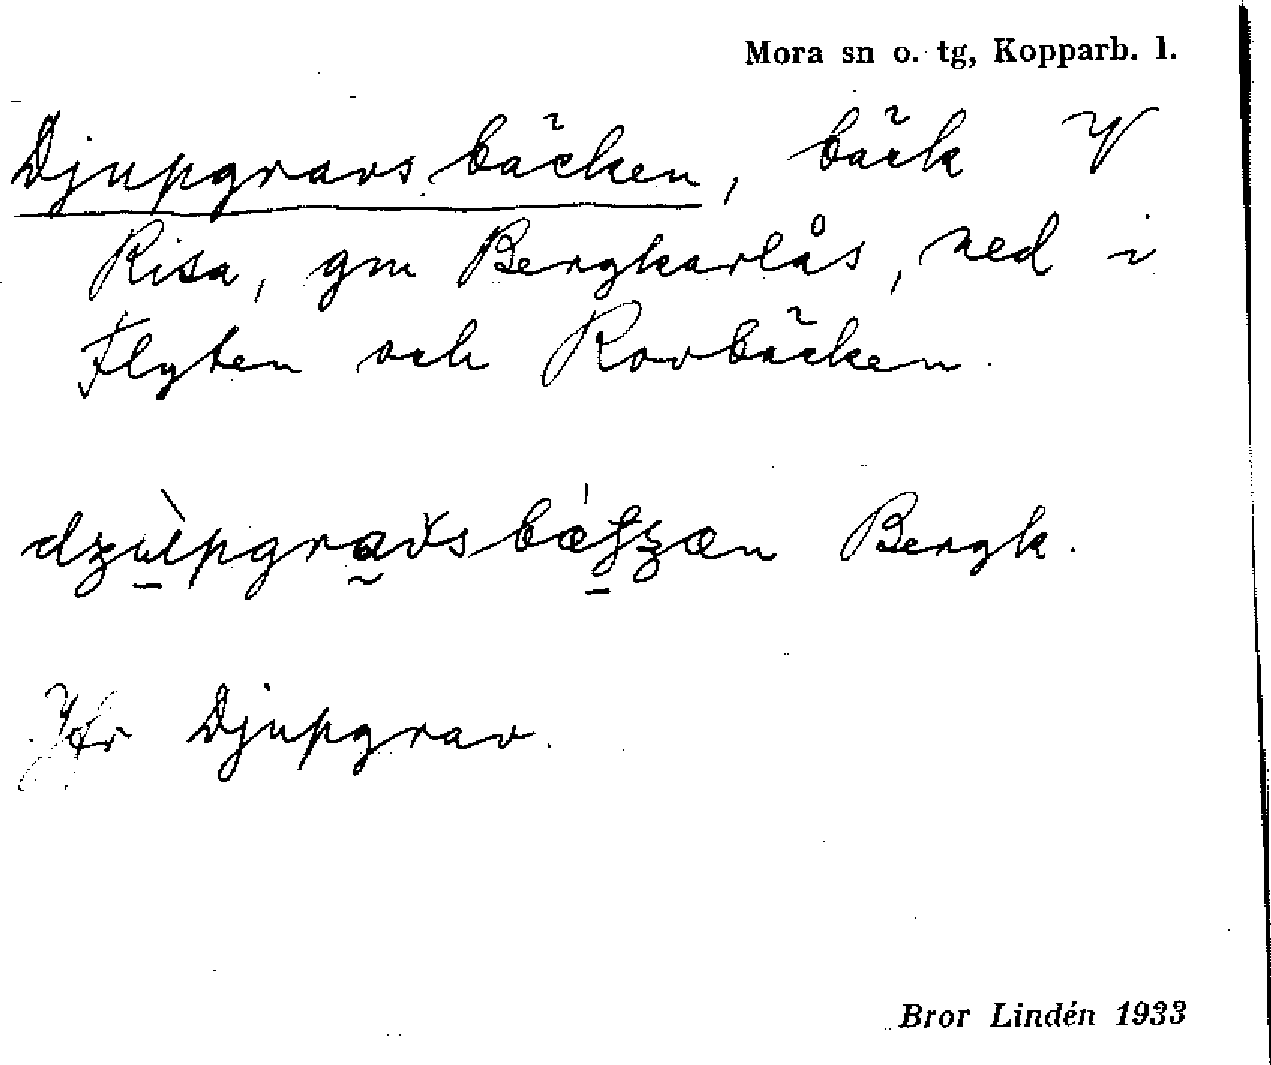 Mora sn o. tg, Kopparb. l.
Djupgravsbäcken, bäck V
Risa, gm Bergkarlås, ned i
Flyten och Rovbäcken.
Bergk.
Jfr Djupgrav.
Bror Lindén 1933